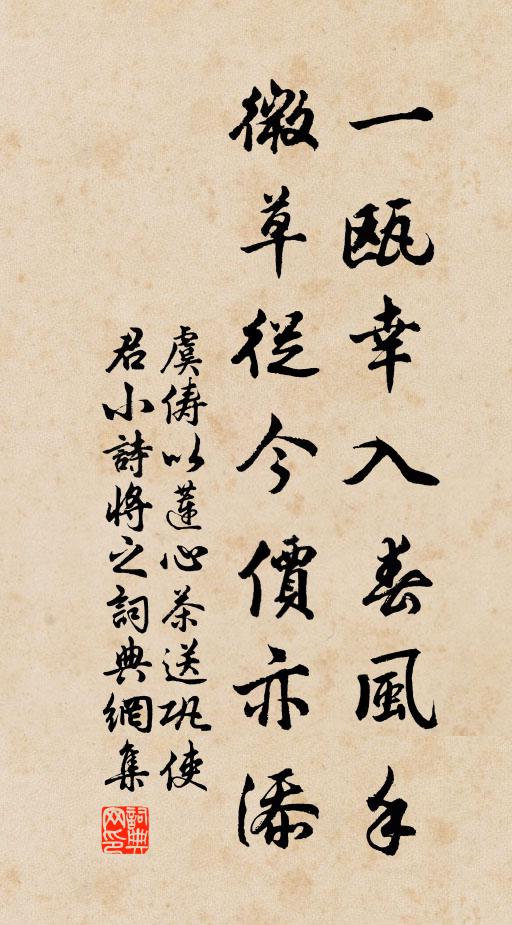 一甌幸入春風手
微草從今價亦添
虞儔以蓮心茶送巩使
君小詩將之詞典網集
詞典
网印